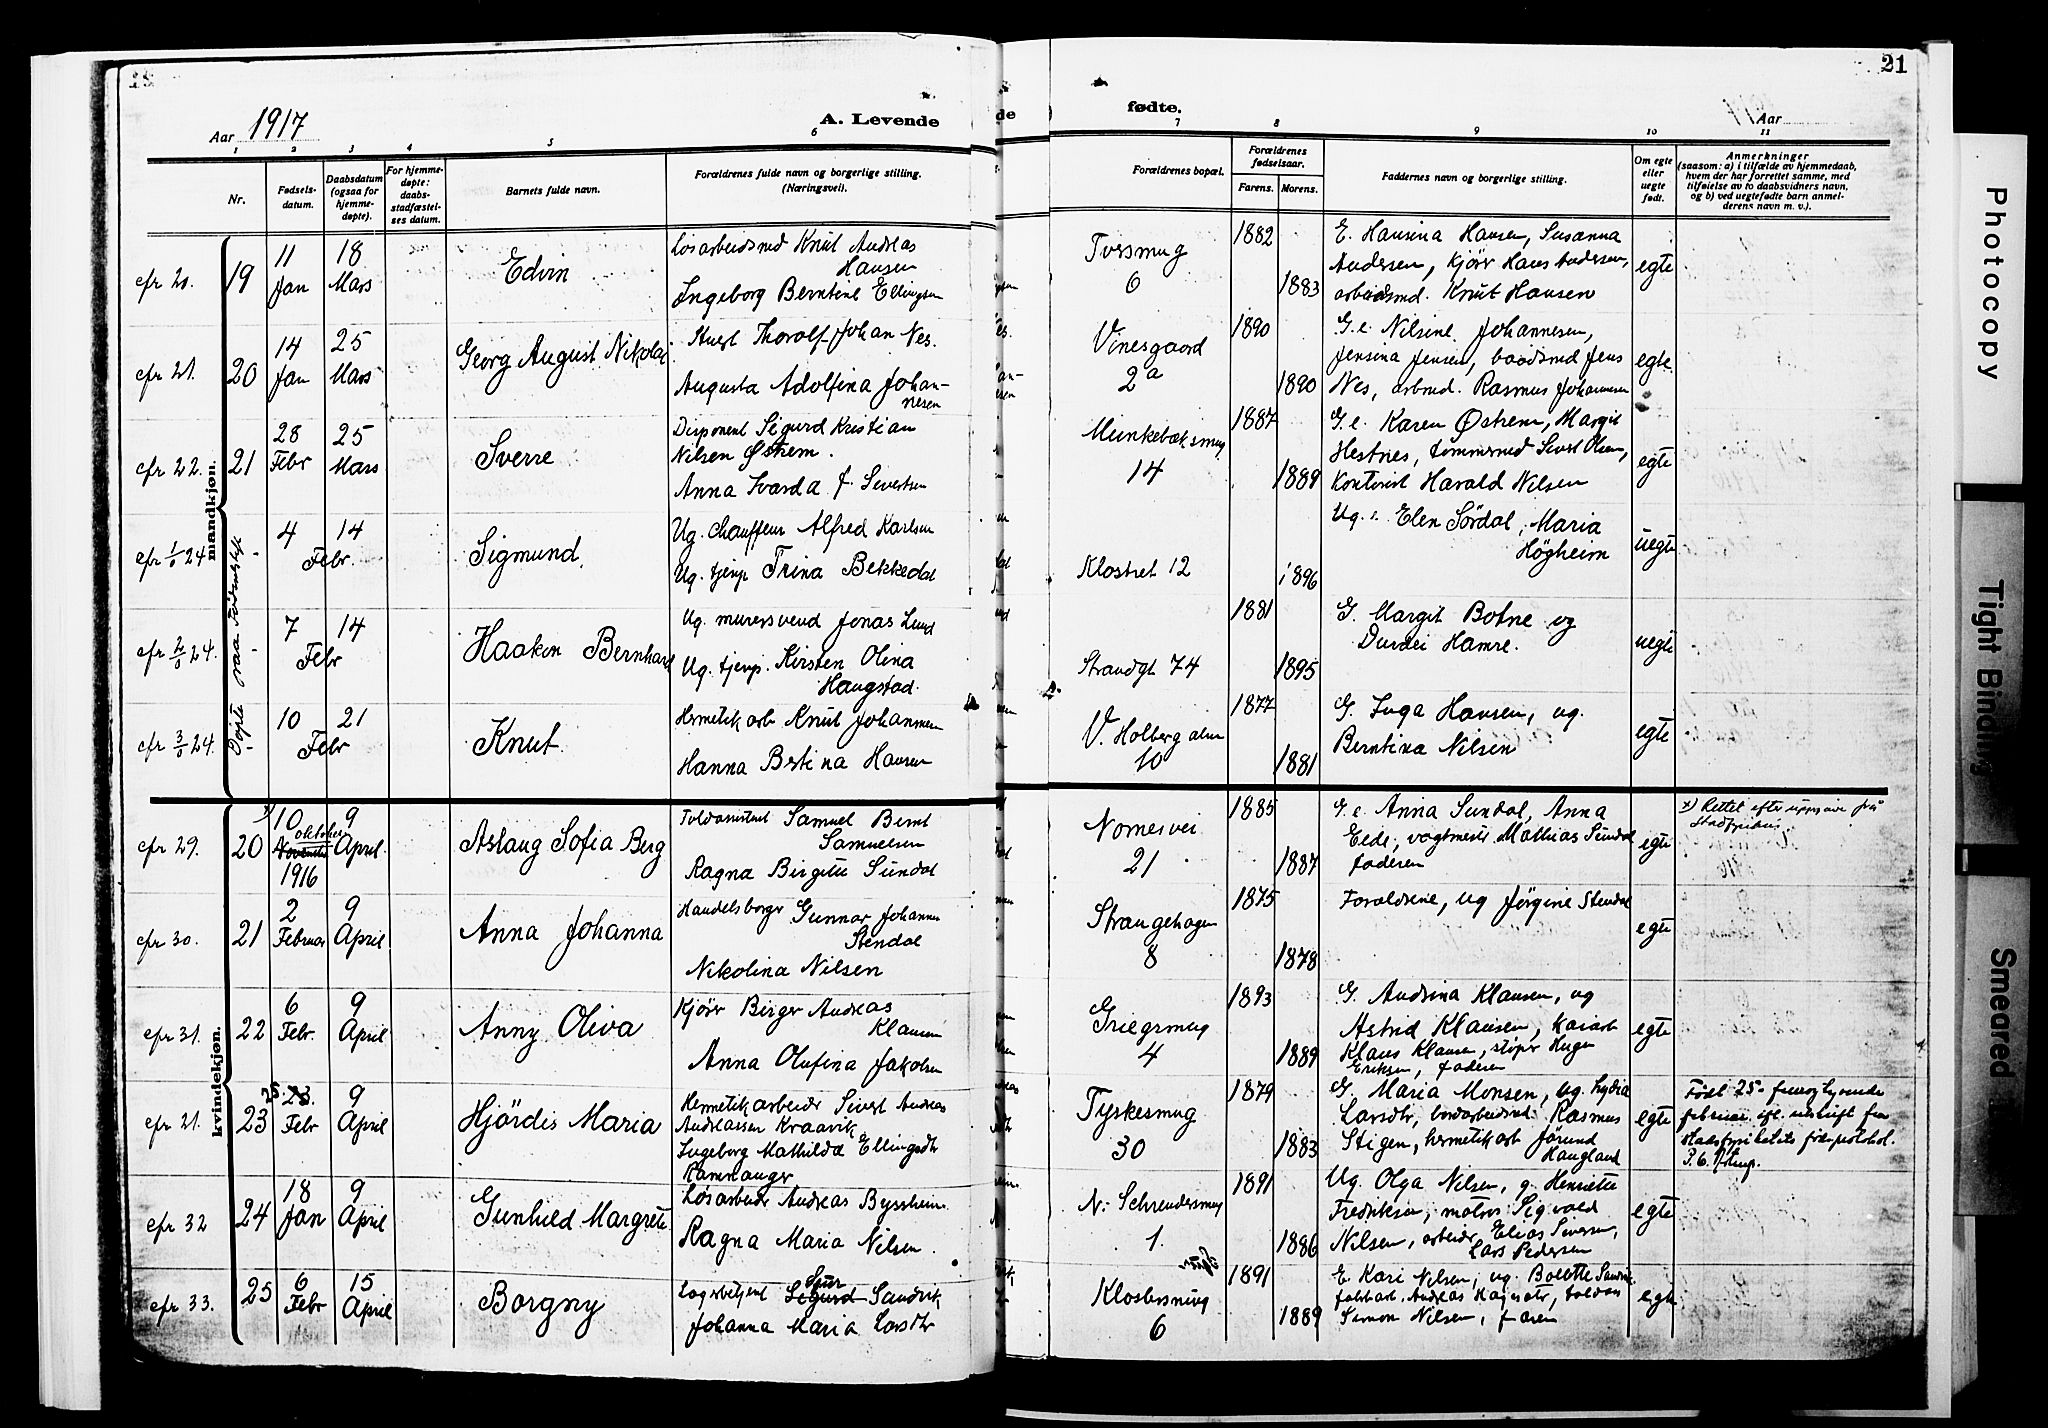 21
Aar 1917
A. Levende
fødte.
Aar
1 2 3 4 5 6 7 8 9 10 11
Nr.
Fødsels-
datum.
Daabsdatum
(ogsaa for
hjemme-
døpte).
For hjemme-
døpte:
daabs-
stadfæstel-
ses datum.
Barnets fulde navn.
Forældrenes fulde navn og borgerlige stilling.
(Næringsvei).
Forældrenes bopæl.
Forældrenes
fødselsaar.
Farens. Morens.
Faddernes navn og borgerlige stilling.
Om egte
eller
uegte
født.
Anmerkninger
(saasom: a) i tilfælde av hjemmedaab,
hvem der har forrettet samme, med
tilføielse av to daabsvidners navn,
og b) ved uegtefødte barn anmel-
derens navn m. v.).
mandkjøn.
efr 20. 19 11 Jan 18 Mars Edvin
Løsarbeidsmd Knut Andreas
Hansen
Ingeborg Berntine Ellingsen
Tversmug
6
1882
1883
E. Hansina Hansen, Susanna
Andersen, Kjører Hans Andersen,
arbeidsmd. Knut Hansen
egte
efr 21. 20 14 Jan 25 Mars Georg August Nikolai
Thorolf Johan Nes.
Augusta Adolfina Johan-
nesen
Vinesgaard
2a
1890
1890
G. e. Nilsine Johannesen,
Jensina Jensen, baadsmd Jens
Nes, arbmd. Rasmus Johannesen
egte.
efr 22. 21 28 Febr 25 Mars Sverre
Disponent Sigurd Kristian
Nilsen Østrem.
Anna Svarda f. Sivertsen
Munkebæksmug
14
1887
1889
G. e. Karen Østrem, Margit
Hestnes, tømmermd Sivert Olsen,
Kontorist Harald Nilsen
egte
Døpte paa Fødselsstif.
efr 1/0 24 4 14 Febr. Sigmund.
Ug. chauffeur Alfred Karlsen
Ug. tjenp Trina Bekkedal
Klostret 12
1896
Ug. e. Elen Sørdal, Maria
Högheim
uegte
efr 2/0 24. 7 14 Febr Haakon Bernhard
Ug. murersvend Jonas Lund
Ug. tjenp. Kirsten Olina
Haugstad.
Strandgt 74
1881
1895
G. Margit Botne og
Durdei Hamre.
uegte
efr 3/0 24. 10 21 Febr Knut.
Hermetik arb Knut Johannesen
Hanna Bertina Hansen
V. Holberg alm
10
1877
1881
G. Inga Hansen, ug.
Berntina Nilsen
egte
kvindekjøn.
efr 29. 20 x) 10 oktober November 1916 9 April. Aslaug Sofia Berg
Toldassistent Samuel Bernt
Samuelsen
Ragna Birgitte Sundal
Nornesvei
21
1885
1887
G e Anna Sundal, Anna
Eide, vagtmester Mathias Sundal
faderen
egte
x) Rettet efter opgave fra
efr 30. 21 2 Februar 9 April Anna Johanna
Handelsborger Gunnar Johannes
Stendal
Nikolina Nilsen
Strangehagen
8
1875
1878
Forældrene, ug Jørgine Stendal
egte
efr 31. 22 6 Febr. 9 April Anny Oliva
Kjører Birger Andreas
Klausen
Anna Olufina Jakobsen
Griegsmug
4
1893
1889
G. Andrina Klausen, ug
Astrid Klausen, kaiarb
Klaus Klausen, støper Hugen
Eriksen, faderen
egte
efr 21. 23 25. 23. Febr 9 April Hjördis Maria
Hermetikarbeider Sivert Andreas
Andreassen Kraavik
Ingeborg Mathilda Ellingsdtr
Kammanger
Tyskesmug
30
1879
1883
G. Maria Monsen, ug. Lydia
Larsdtr, bordarbeidsmd. Rasmus
Stigen, hermetikarb Jørund
Haugland
egte
Født 25 - fem og tyvende
februar ifl. utskrift fra
efr 32 24 18 Jan 9 April Gunhild Margrete
Løsarbeider Andreas Byssheim
Ragna Maria Nilsen.
N. Schreudersmug
1.
1891
1886
Ug. Olga Nilsen, g. Henriette
Fredriksen, matros Sigvald
Nilsen, arbeider Elias Sivertsen,
Lars Pedersen
egte
efr 33. 25 6 Febr 15 April Borgny
Lagerbetjent Sigurd Sandvik
Johanna Maria Larsdtr
Klostersmug
6
1891
1889
E. Kari Nilsen, ug. Bolette Sandvik
fabkarb. Andreas
Simon Nilsen, faren
egte
Photocopy
Tight Binding
Smeared